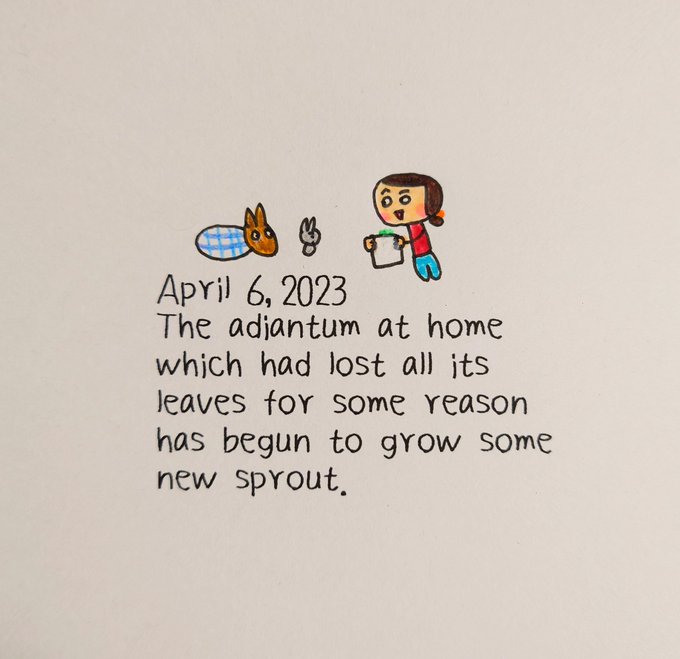 April 6, 2023
The adiantum at home
which had lost all its
leaves for some reason
has begun to grow some
new sprout.